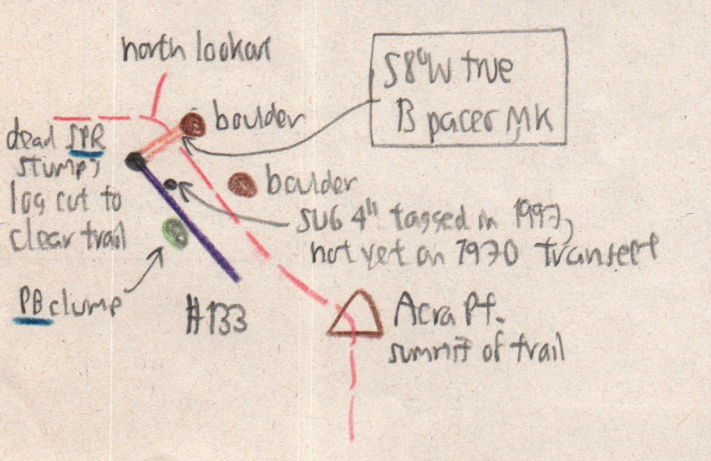 north lookout
S8°W true
B pacer MK
boulder
dead SPR
stump,
log cut to
clear trail
boulder
SUG 4" tagged in 1997,
not yet on 1970 transect
PB clump
#133
Acra Pt.
summit of trail